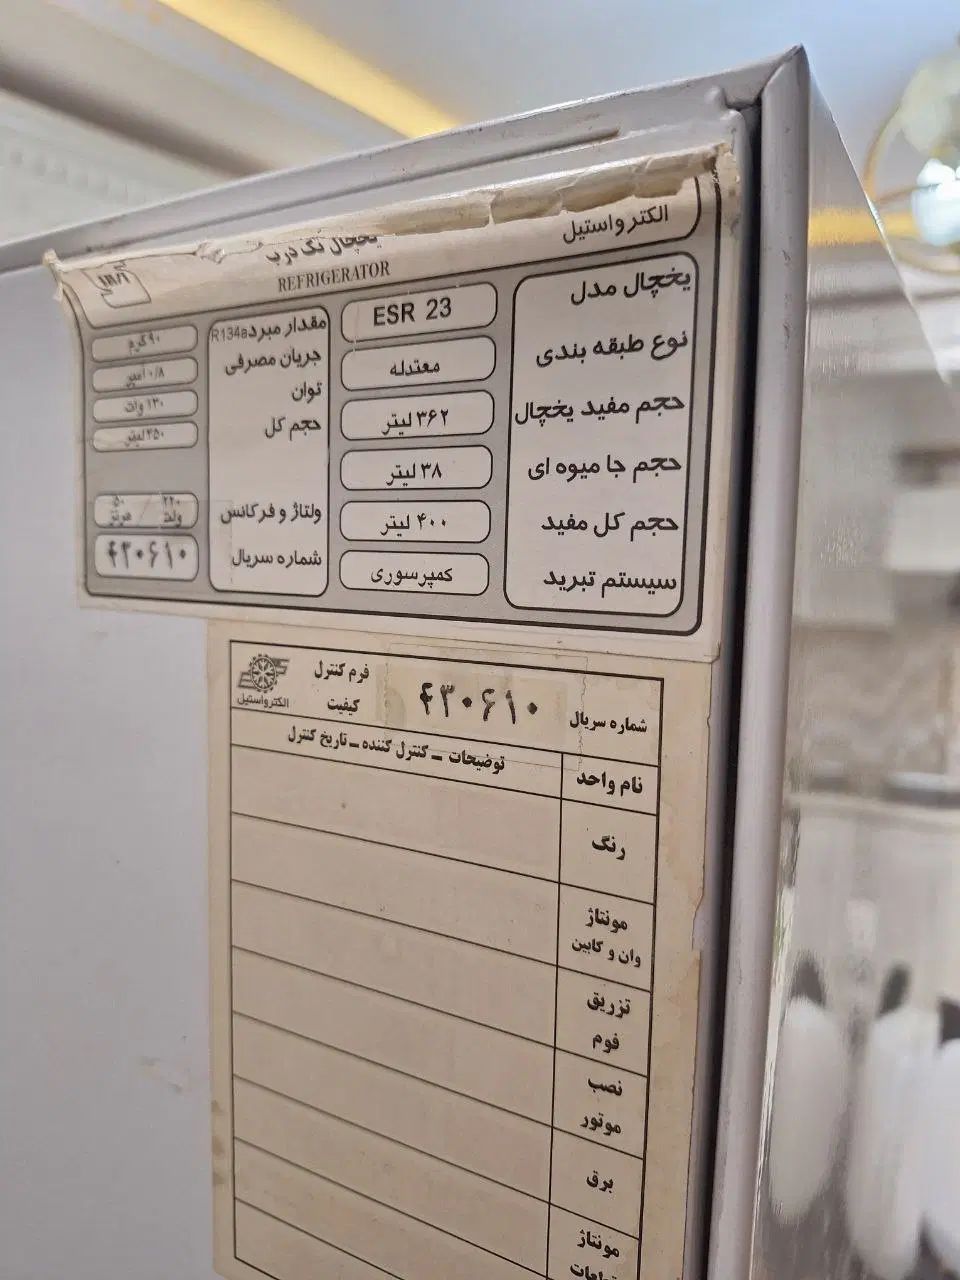 الکترواستیل
یخچال تک درب
REFRIGERATOR
یخچال مدل ESR 23
نوع طبقه بندی معتدله
حجم مفید یخچال ۳۶۲ لیتر
حجم جا میوه ای ۳۸ لیتر
حجم کل مفید ۴۰۰ لیتر
سیستم تبرید کمپرسوری
مقدار مبرد R134a ۹۰ گرم
جریان مصرفی ۰/۸ آمپر
توان ۱۳۰ وات
حجم کل ۴۵۰ لیتر
ولتاژ و فرکانس ۲۲۰ ولت / ۵۰ هرتز
شماره سریال ۴۳۰۶۱۰
شماره سریال ۴۳۰۶۱۰
فرم کنترل
کیفیت
الکترواستیل
نام واحد
توضیحات ـ کنترل کننده ـ تاریخ کنترل
رنگ
مونتاژ
وان و کابین
تزریق
فوم
نصب
موتور
برق
مونتاژ